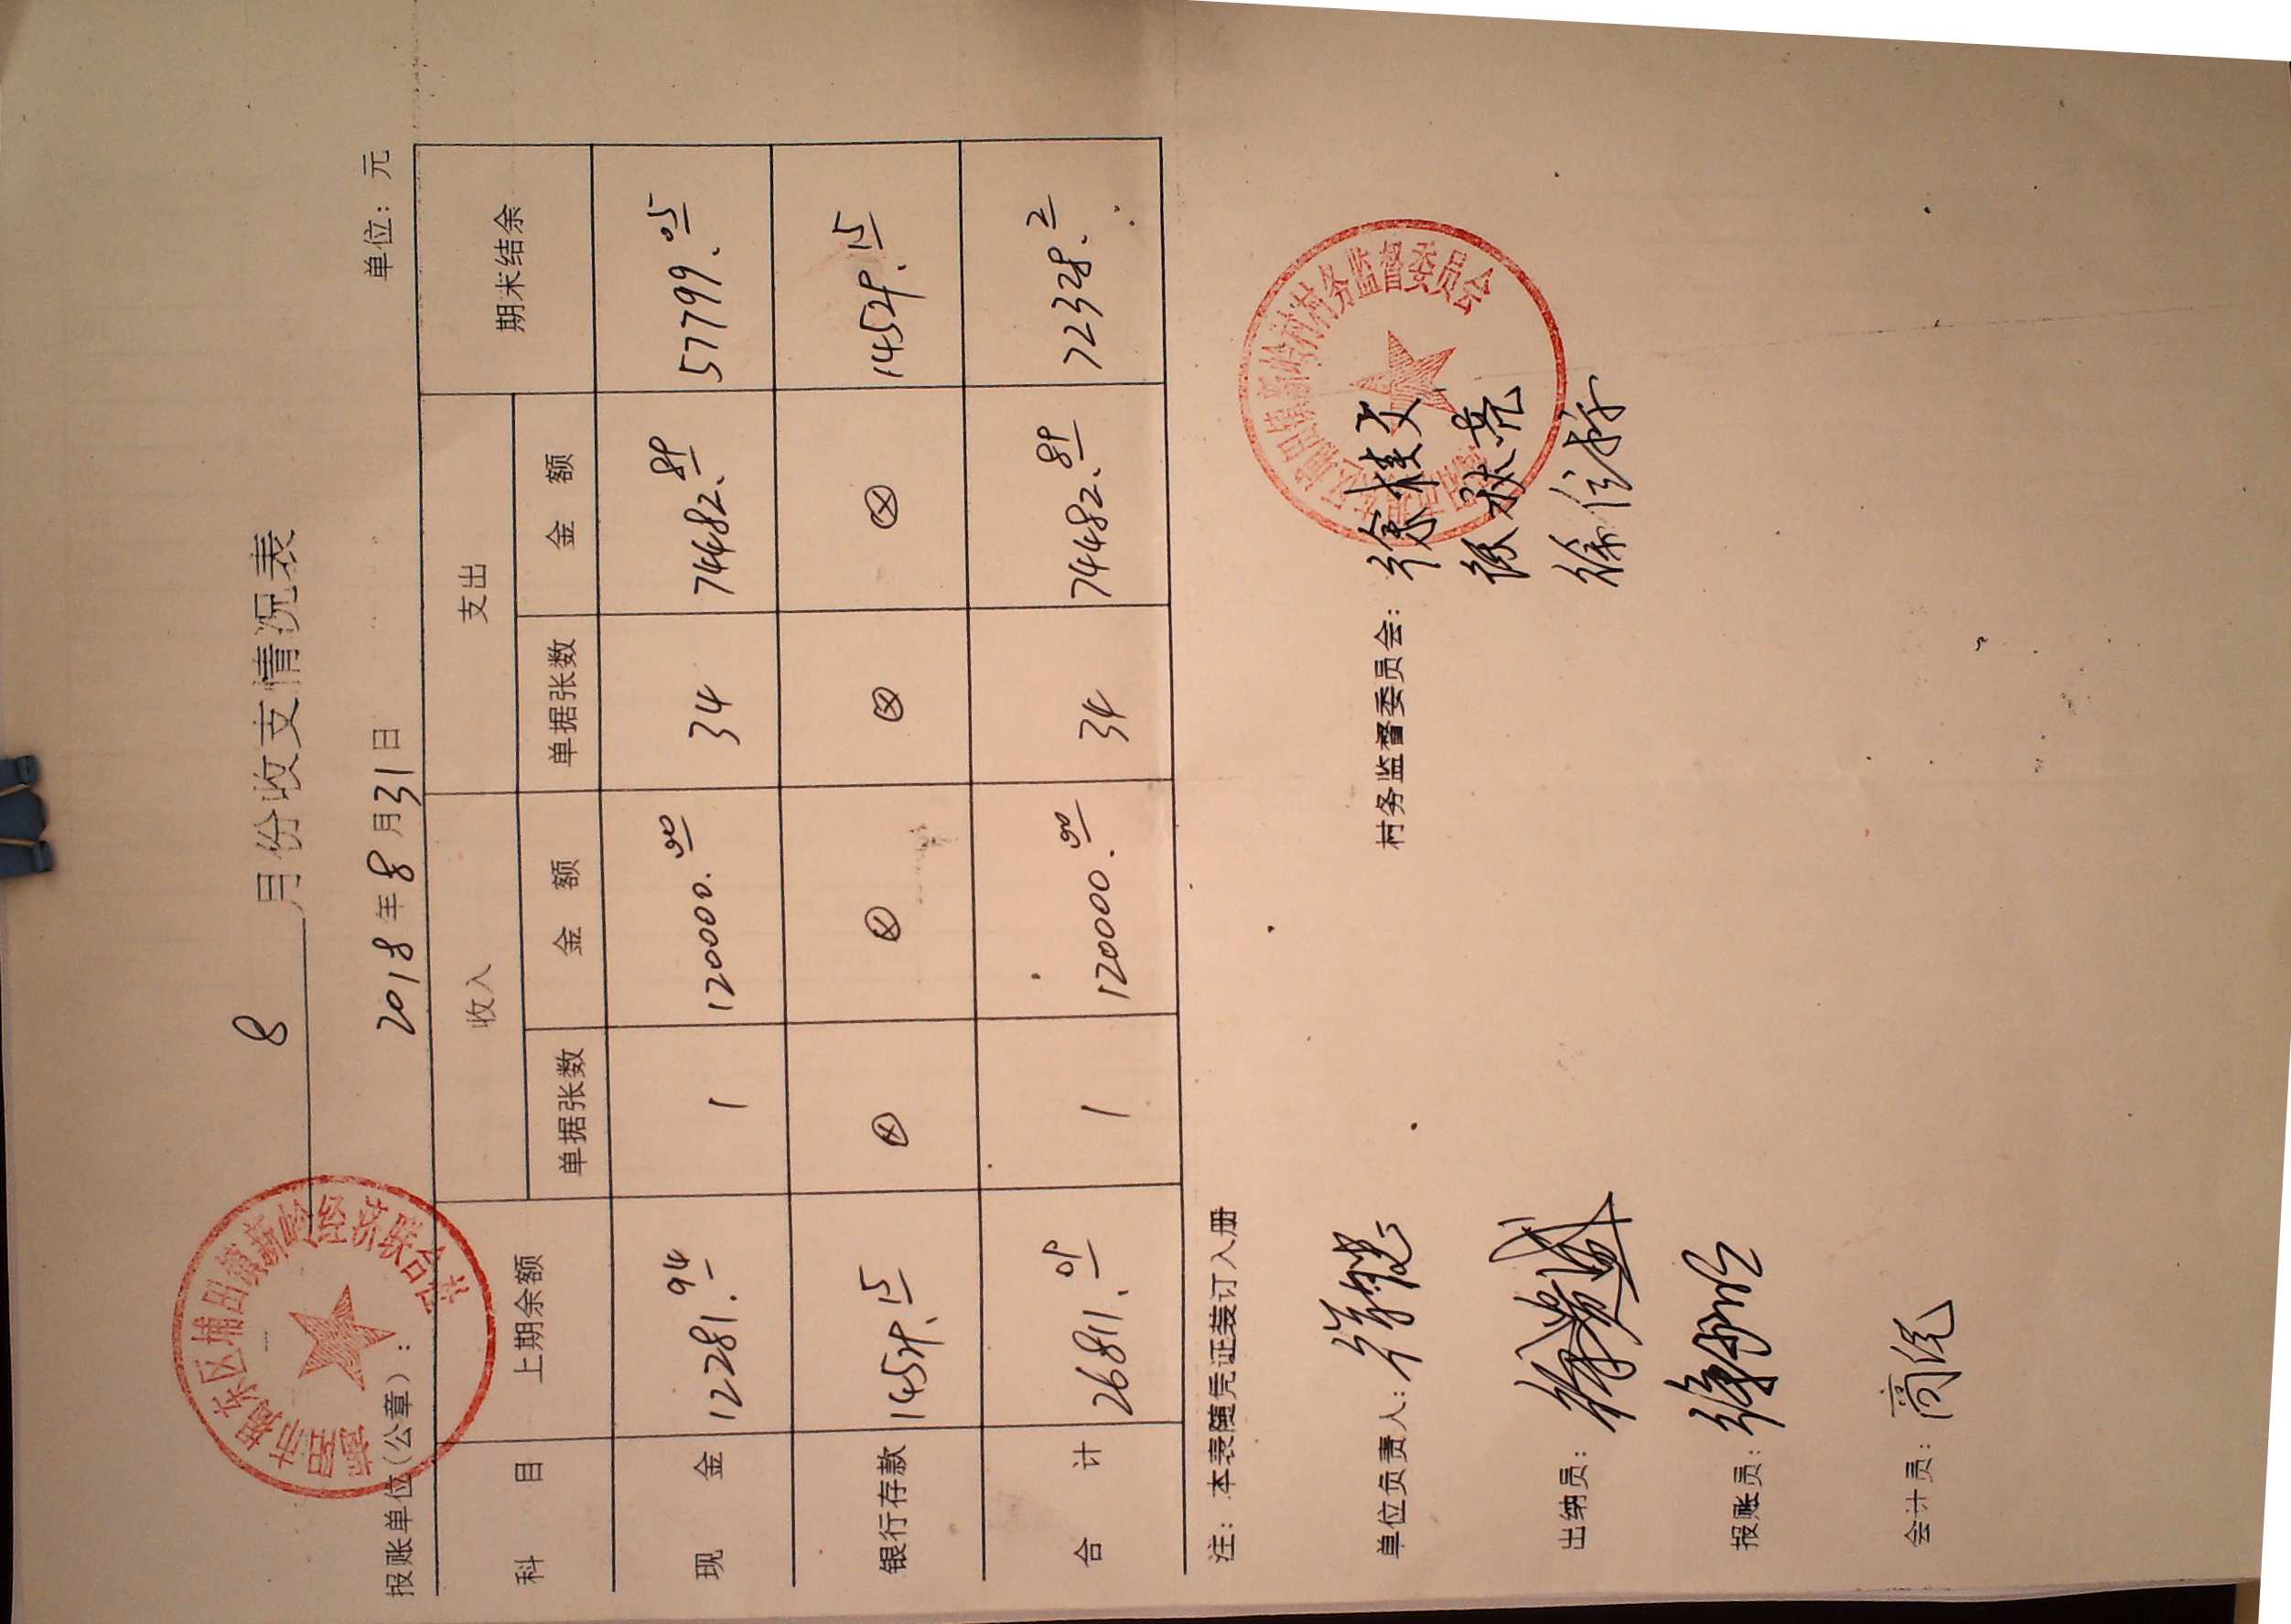 8 月份收支情况表
揭阳市揭东区埔田镇新岭经济联合社
报账单位(公章):
2018年8月31日
单位:元
科 目 上期余额 收入 支出 期末结余
单据张数 金 额 单据张数 金 额
现 金 12281.94 1 120000.00 34 74482.89 57799.05
银行存款 14529.15 ⊗ ⊗ ⊗ ⊗ 14529.15
合 计 26811.09 1 120000.00 34 74482.89 72328.2
注:本表随凭证装订入册
单位负责人:
村务监督委员会:
新岭村村务监督委员会
出纳员:
报账员:
会计员: